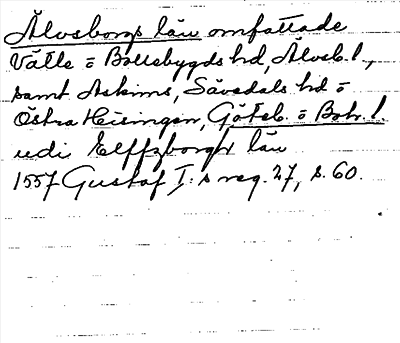 Älvsborgs län omfattade
Vätle o Bollebygds hd, Älvsb. l.,
samt Askims, Sävedals hd o
Östra Hisingen, Göteb. o Boh. l.
udi Elffzborgz län
1557 Gustaf I:s reg. 27, s. 60.